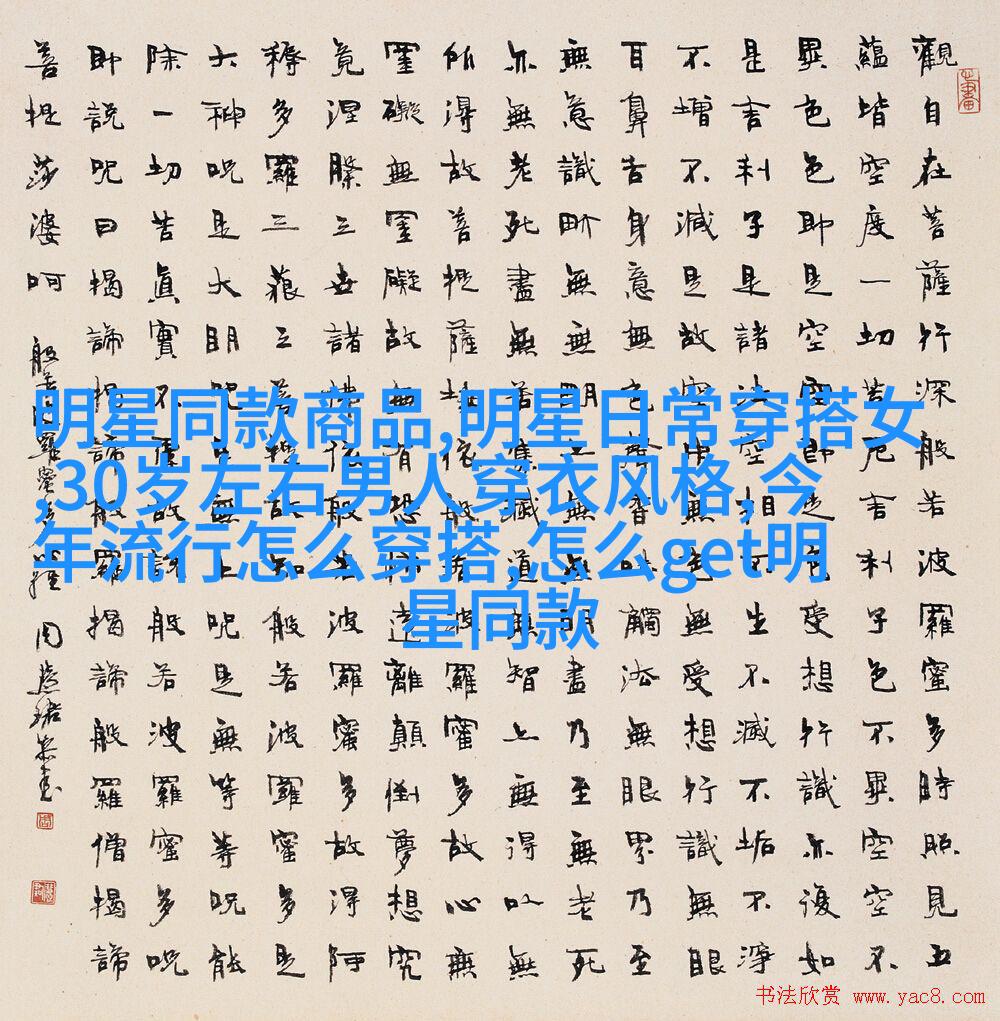 觀自在菩薩行深般若波羅蜜多時照見五
蘊皆空度一切苦厄舍利子色不異空空不
異色色即是空空即是色受想行識亦復如
是舍利子是諸法空相不生不滅不垢不淨
不增不減是故空中無色無受想行識無眼
耳鼻舌身意無色聲香味觸法無眼界乃至
無意識界無無明亦無無明盡乃至無老死
亦無老死盡無苦集滅道無智亦無得以無
所得故菩提薩埵依般若波羅蜜多故心無
罣礙無罣礙故無有恐怖遠離顛倒夢想究
竟涅槃三世諸佛依般若波羅蜜多故得阿
耨多羅三藐三菩提故知般若波羅蜜多是
大神呪是大明呪是無上呪是無等等呪能
除一切苦眞實不虛故說般若波羅蜜多呪
即說呪曰揭諦揭諦般羅揭諦般羅僧揭諦
菩提莎婆呵
般若波羅蜜多心經 周慧珺恭書
明星同款商品,明星日常穿搭女
,30岁左右男人穿衣风格,今
年流行怎么穿搭,怎么get明
星同款
书法欣赏 www.yac8.com